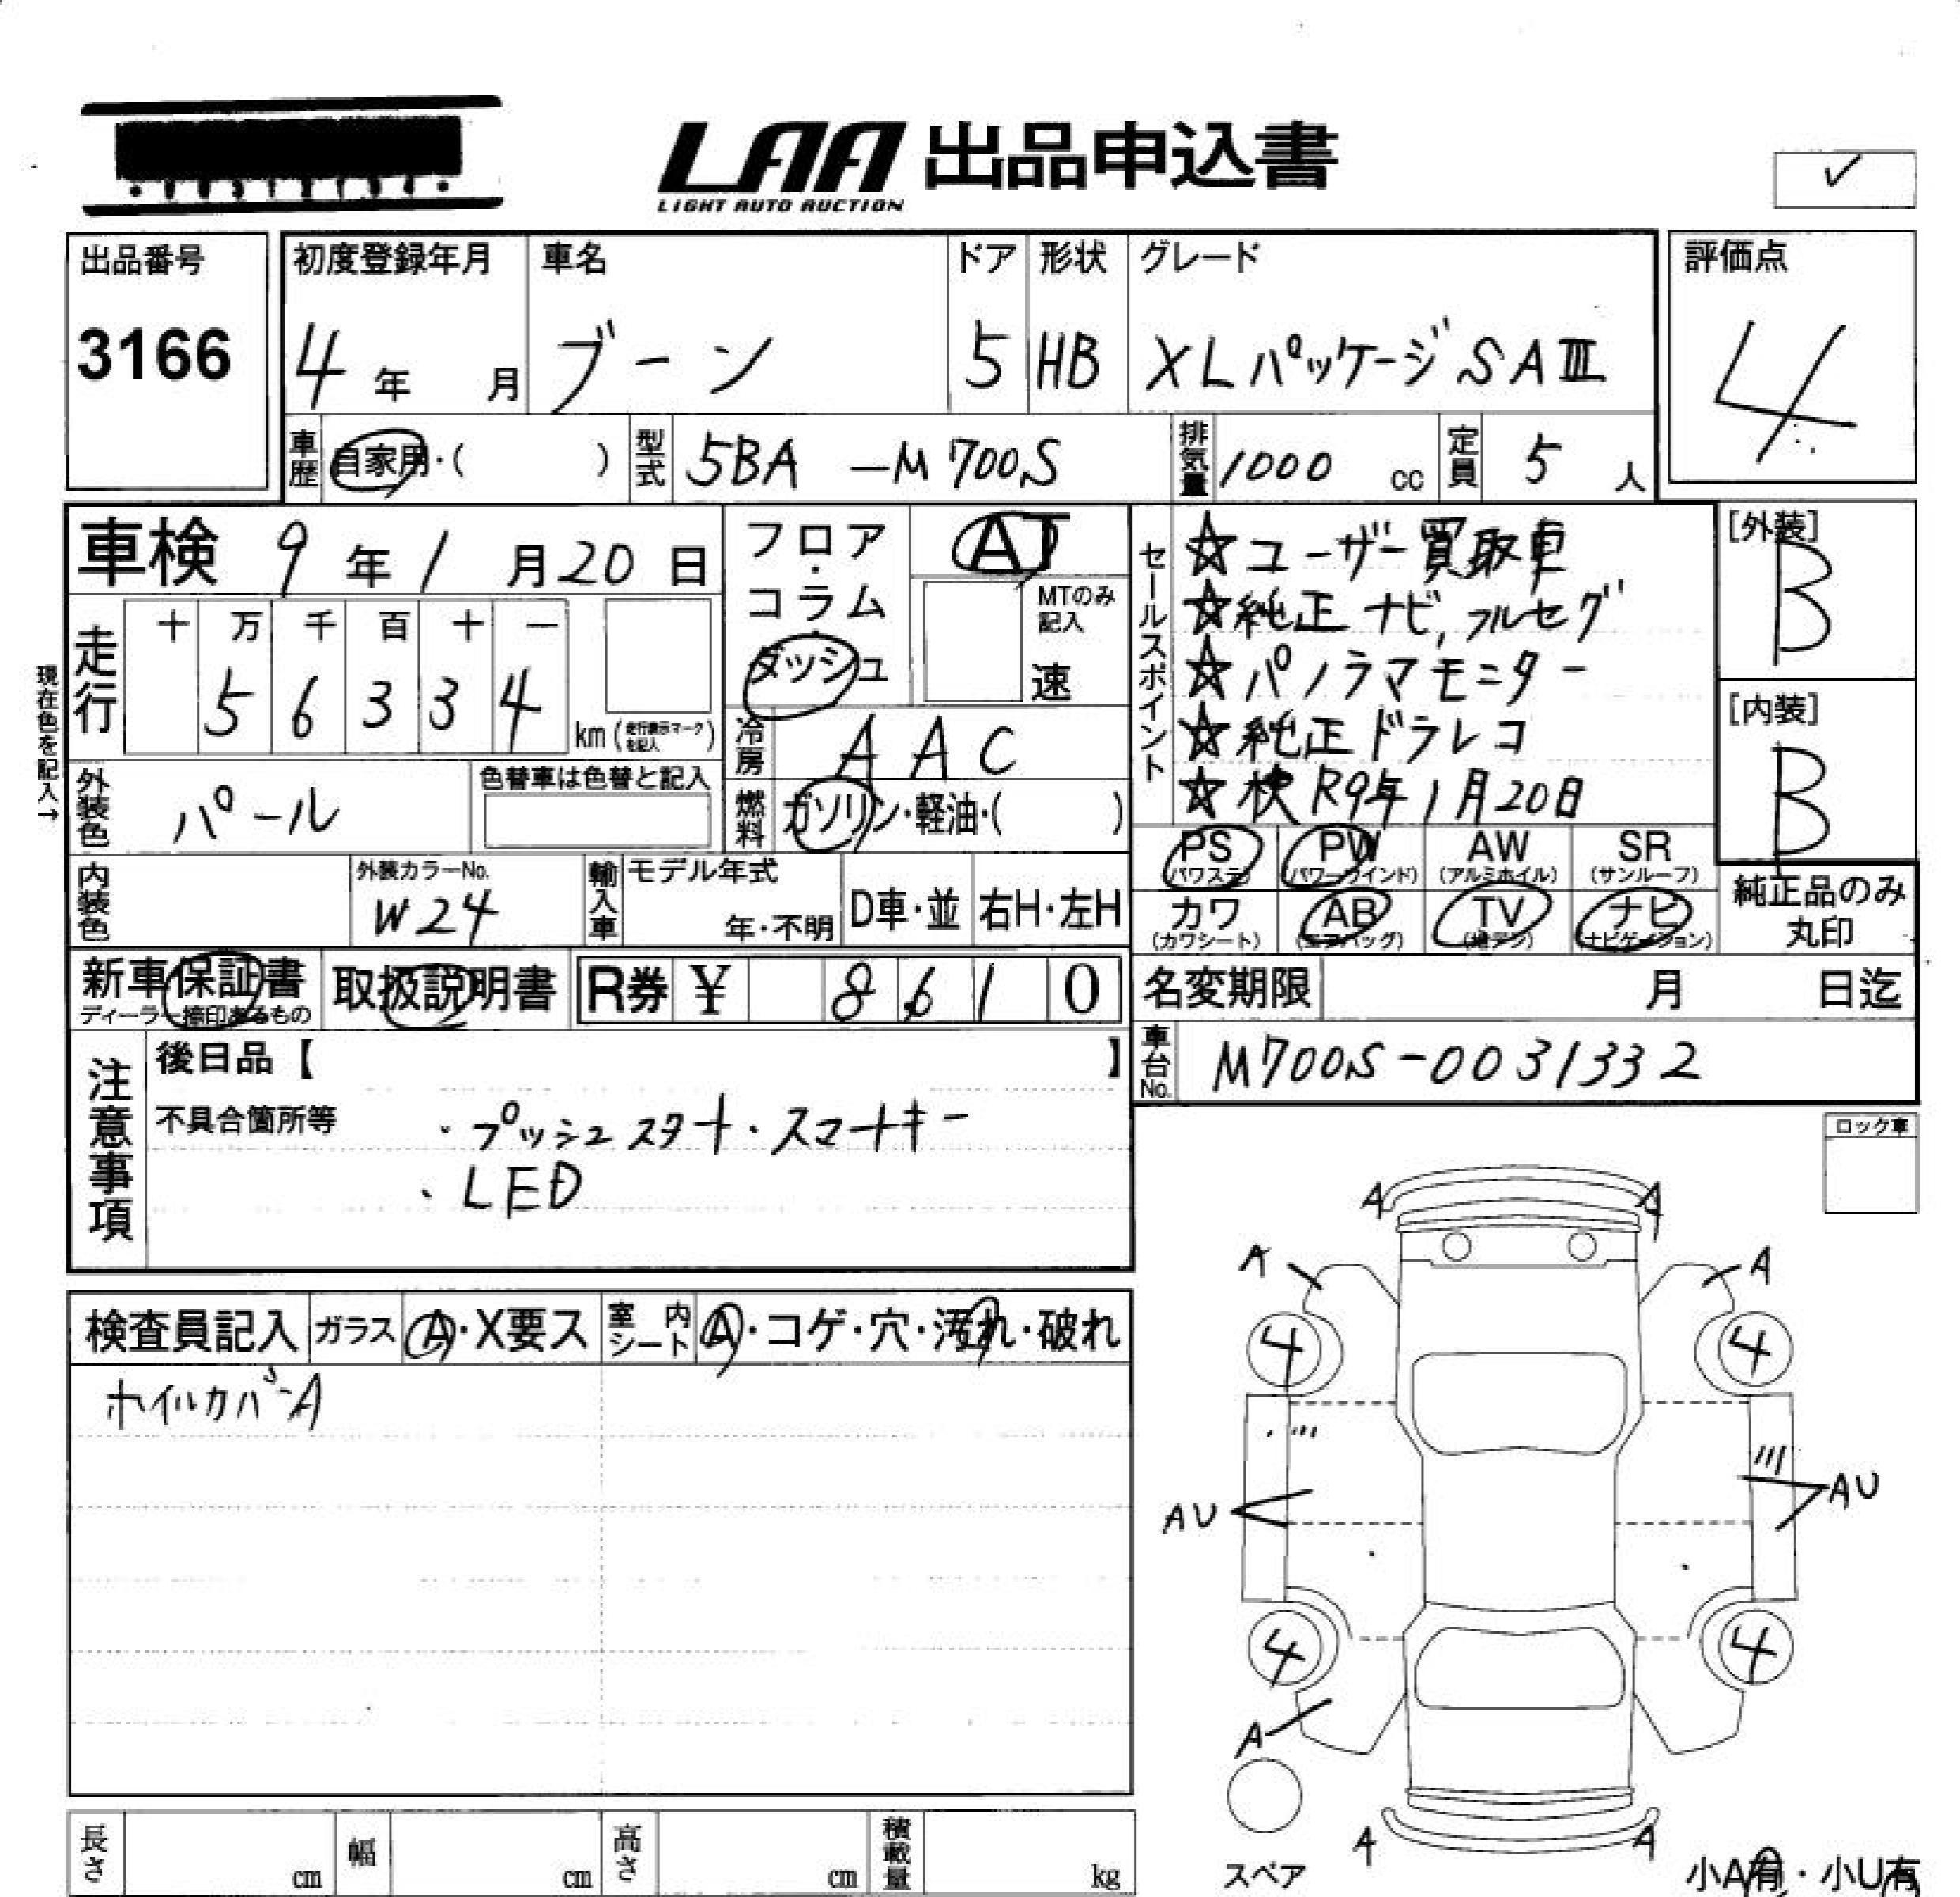 LAA 出品申込書
LIGHT AUTO AUCTION
✓
出品番号
3166
初度登録年月
4 年 月
車名
ブーン
ドア
5
形状
HB
グレード
XLパッケージSAⅢ
評価点
4
車歴 自家用・( )
型式 5BA-M700S
排気量 1000 cc
定員 5 人
車検 9年1月20日
フロア・コラム・ダッシュ
AT
MTのみ記入
速
走行
十 万 千 百 十 一
5 6 3 3 4
km (走行表示マークを記入)
現在色を記入→
冷房 AAC
燃料 ガソリン・軽油・( )
外装色 パール
色替車は色替と記入
内装色
外装カラーNo.
W24
輸入車
モデル年式
年・不明
D車・並
右H・左H
セールスポイント
☆ユーザー買取車
☆純正ナビ,フルセグ
☆パノラマモニター
☆純正ドラレコ
☆検R9年1月20日
[外装]
B
[内装]
B
PS (パワステ)
PW (パワーウインド)
AW (アルミホイル)
SR (サンルーフ)
カワ (カワシート)
AB (エアバッグ)
TV (地デジ)
ナビ (ナビゲイション)
純正品のみ丸印
新車保証書
ディーラー捺印あるもの
取扱説明書
R券 ¥ 8 6 1 0
名変期限 月 日迄
車台No. M700S-0031332
注意事項
後日品【 】
不具合箇所等
・プッシュスタート・スマートキー
・LED
ロック車
検査員記入
ガラス A・X要ス
室内シート A・コゲ・穴・汚れ・破れ
ホイルカバーA
A A
A A
4 4
AU AU
4 4
A
A A
スペア
小A有・小U有
長さ cm
幅 cm
高さ cm
積載量 kg